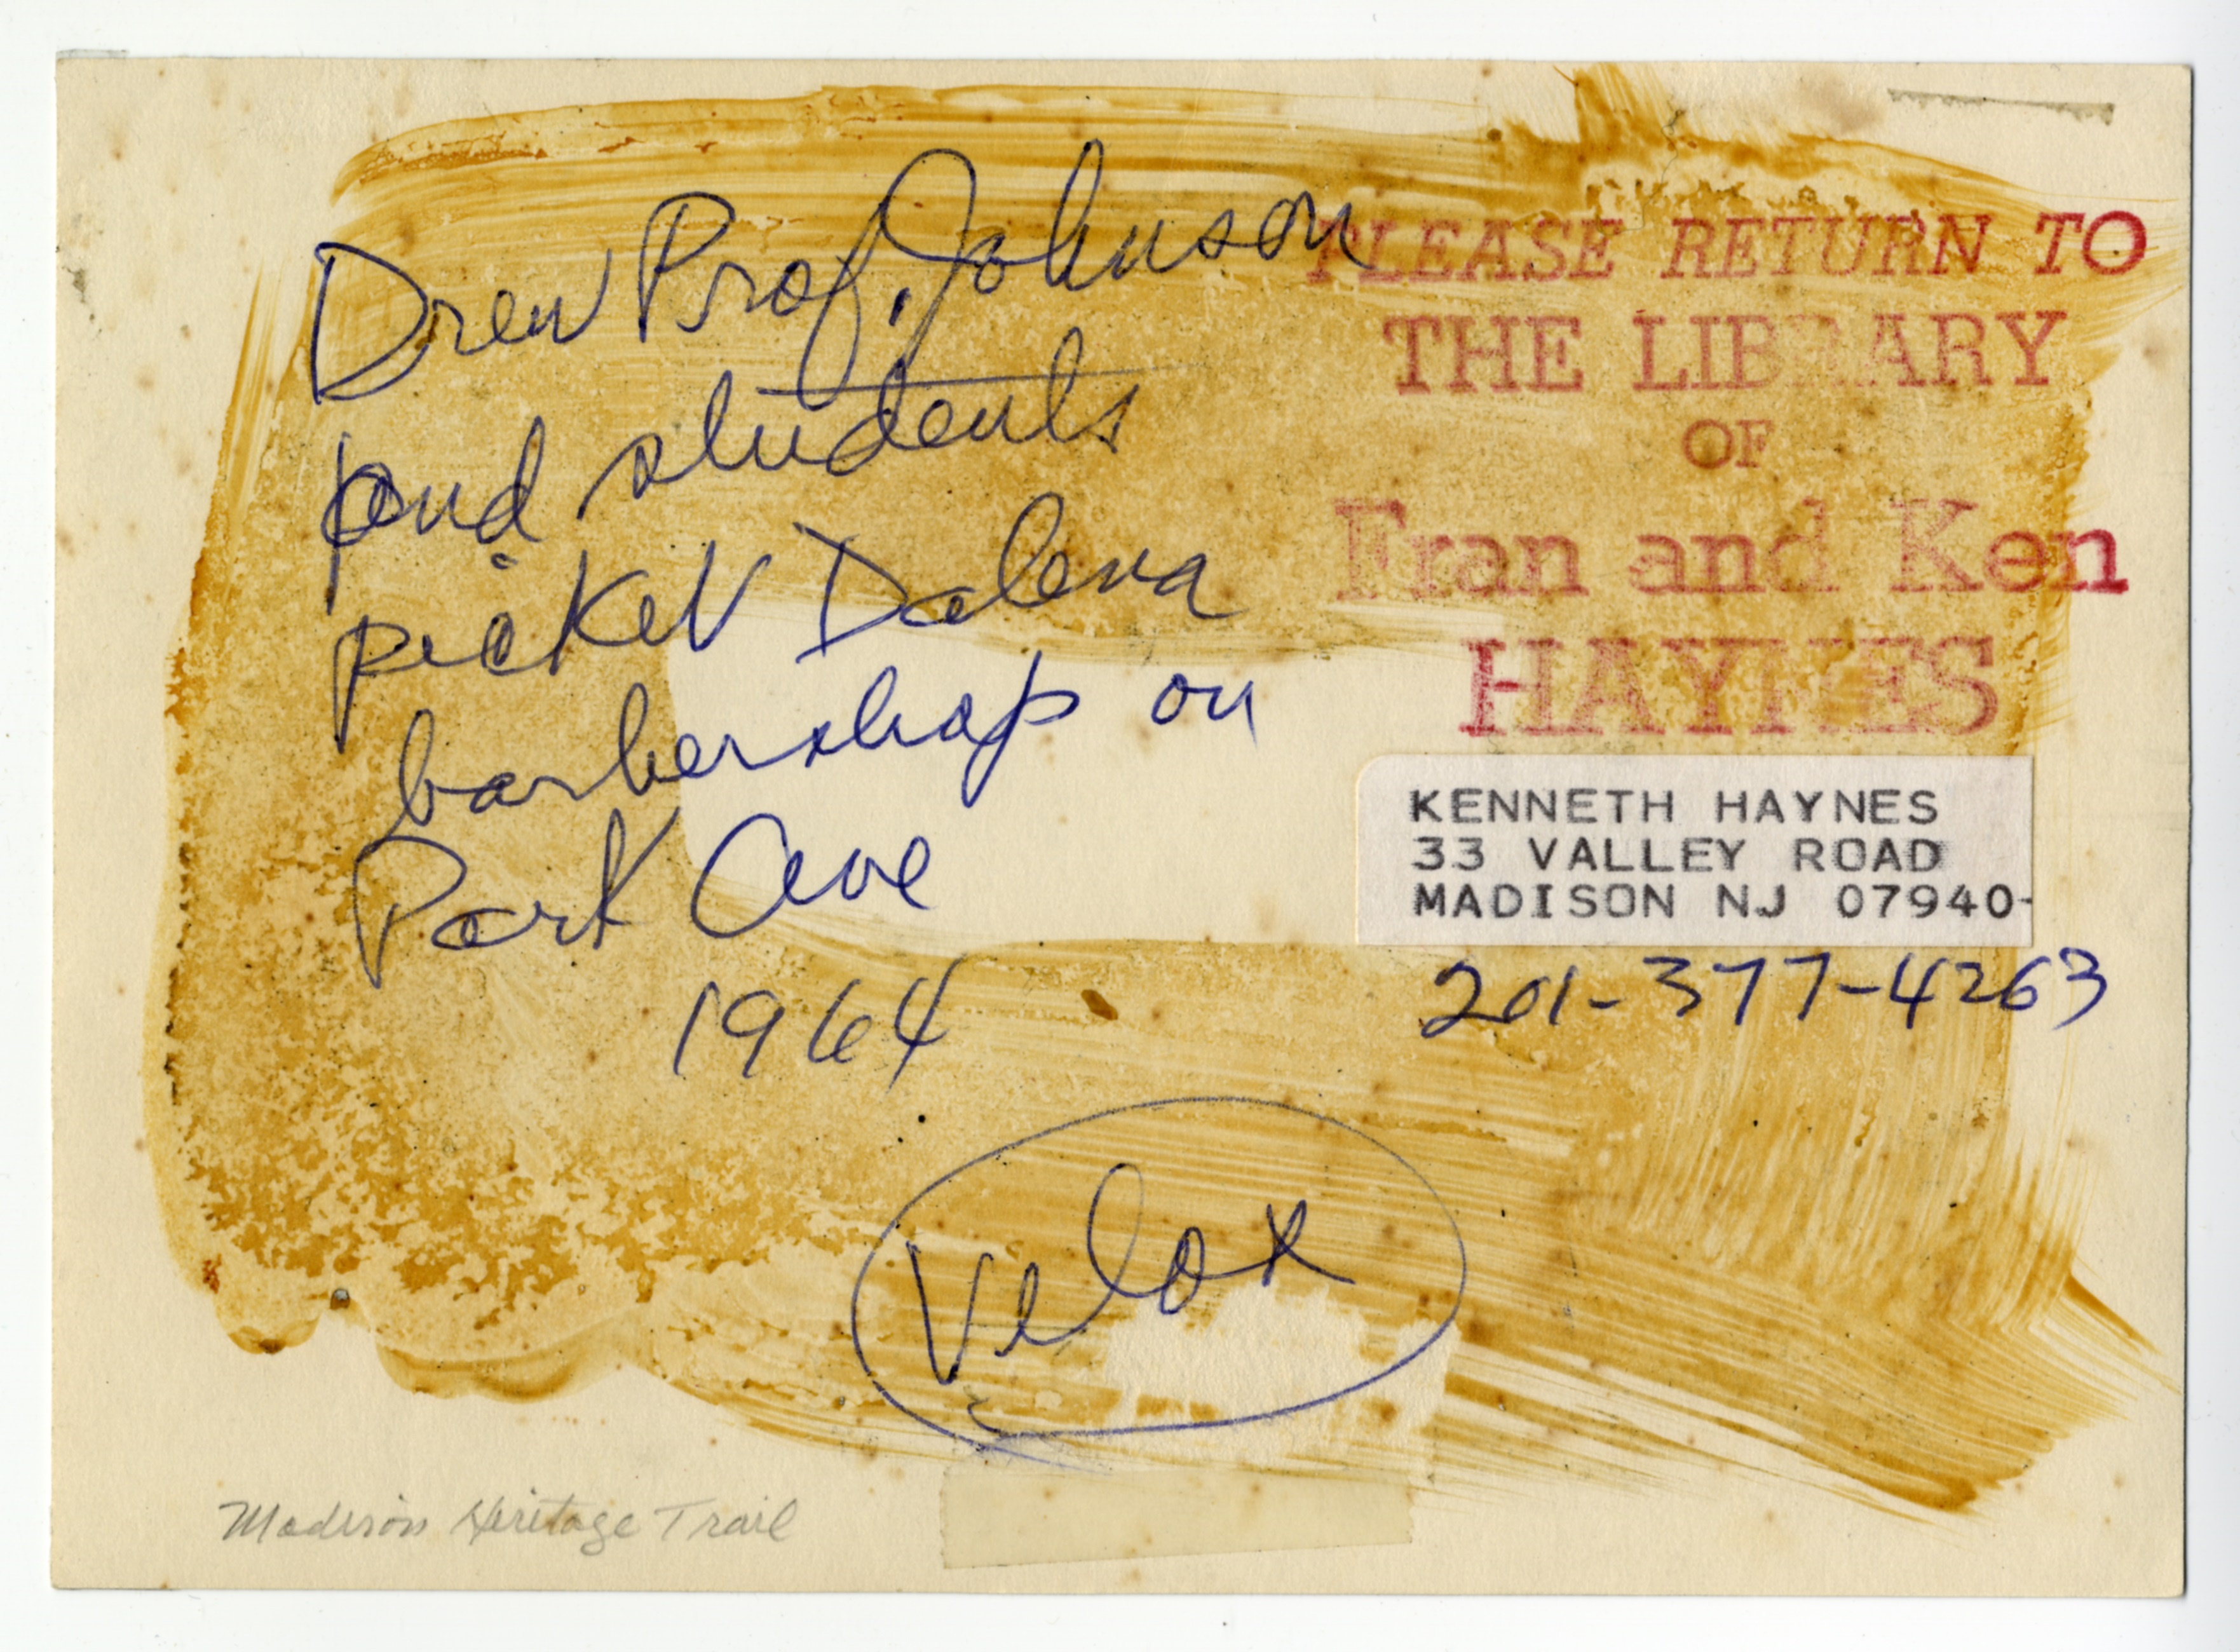 Drew Prof. Johnson
and students
picket Dalena
barbershop on
Park Ave
1964
Velox
PLEASE RETURN TO
THE LIBRARY
OF
Fran and Ken
HAYNES
KENNETH HAYNES
33 VALLEY ROAD
MADISON NJ 07940-
201-377-4263
Madison Heritage Trail